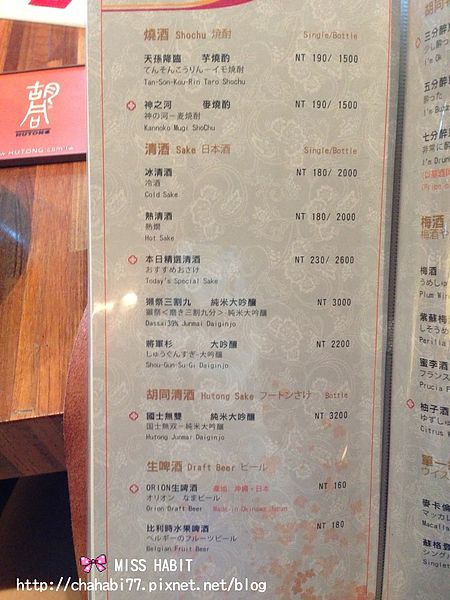 胡同
HUTONG
WWW.HUTONG.com.tw
燒酒 Shochu 燒酎 Single/Bottle
天孫降臨 芋燒酌 NT 190/ 1500
てんそんこうりんーイモ焼酎
Tan-Son-Kou-Rin Taro Shochu
神之河 麥燒酌 NT 190/ 1500
神の河ー麦焼酎
Kannoko Mugi ShoChu
清酒 Sake 日本酒 Single/Bottle
冰清酒 NT 180/ 2000
冷酒
Cold Sake
熱清酒 NT 180/ 2000
熱燗
Hot Sake
本日精選清酒 NT 230/ 2600
おすすめおさけ
Today's Special Sake
獺祭三割九 純米大吟釀 NT 3000
獺祭<磨き三割九分> 純米大吟醸
Dassai39% Junmai Daiginjo
將軍杉 大吟釀 NT 2200
しゅうぐんすぎ-大吟醸
Shou-Gun-Su-Gi Daiginjo
胡同清酒 Hutong Sake フートンさけ Bottle
國士無雙 純米大吟釀 NT 3200
国士無双ー純米大吟醸
Hutong Junmai Daiginjo
生啤酒 Draft Beer ビール
ORION生啤酒 產地:沖繩,日本 NT 160
オリオン なまビール
Orion Draft Beer Made in Okinawa Japan
比利時水果啤酒 NT 180
ベルギーのフルーツビール
Belgian Fruit Beer
胡同
三分醉
少し酔っ
I'm Ok
五分醉
酔った
I'm Buzz
七分醉
非常に酔
I'm Drun
梅酒
梅酒や
梅酒
うめしゅ
Plum Win
紫蘇梅
しそうめ
Perilla
蜜李酒
フランス
Prucia F
柚子酒
ゆずしゅ
Citrus W
單一
ウイス
麥卡倫
マッカラ
Macalla
蘇格登
シングル
Singlet
MISS HABIT
http://chahabi77.pixnet.net/blog